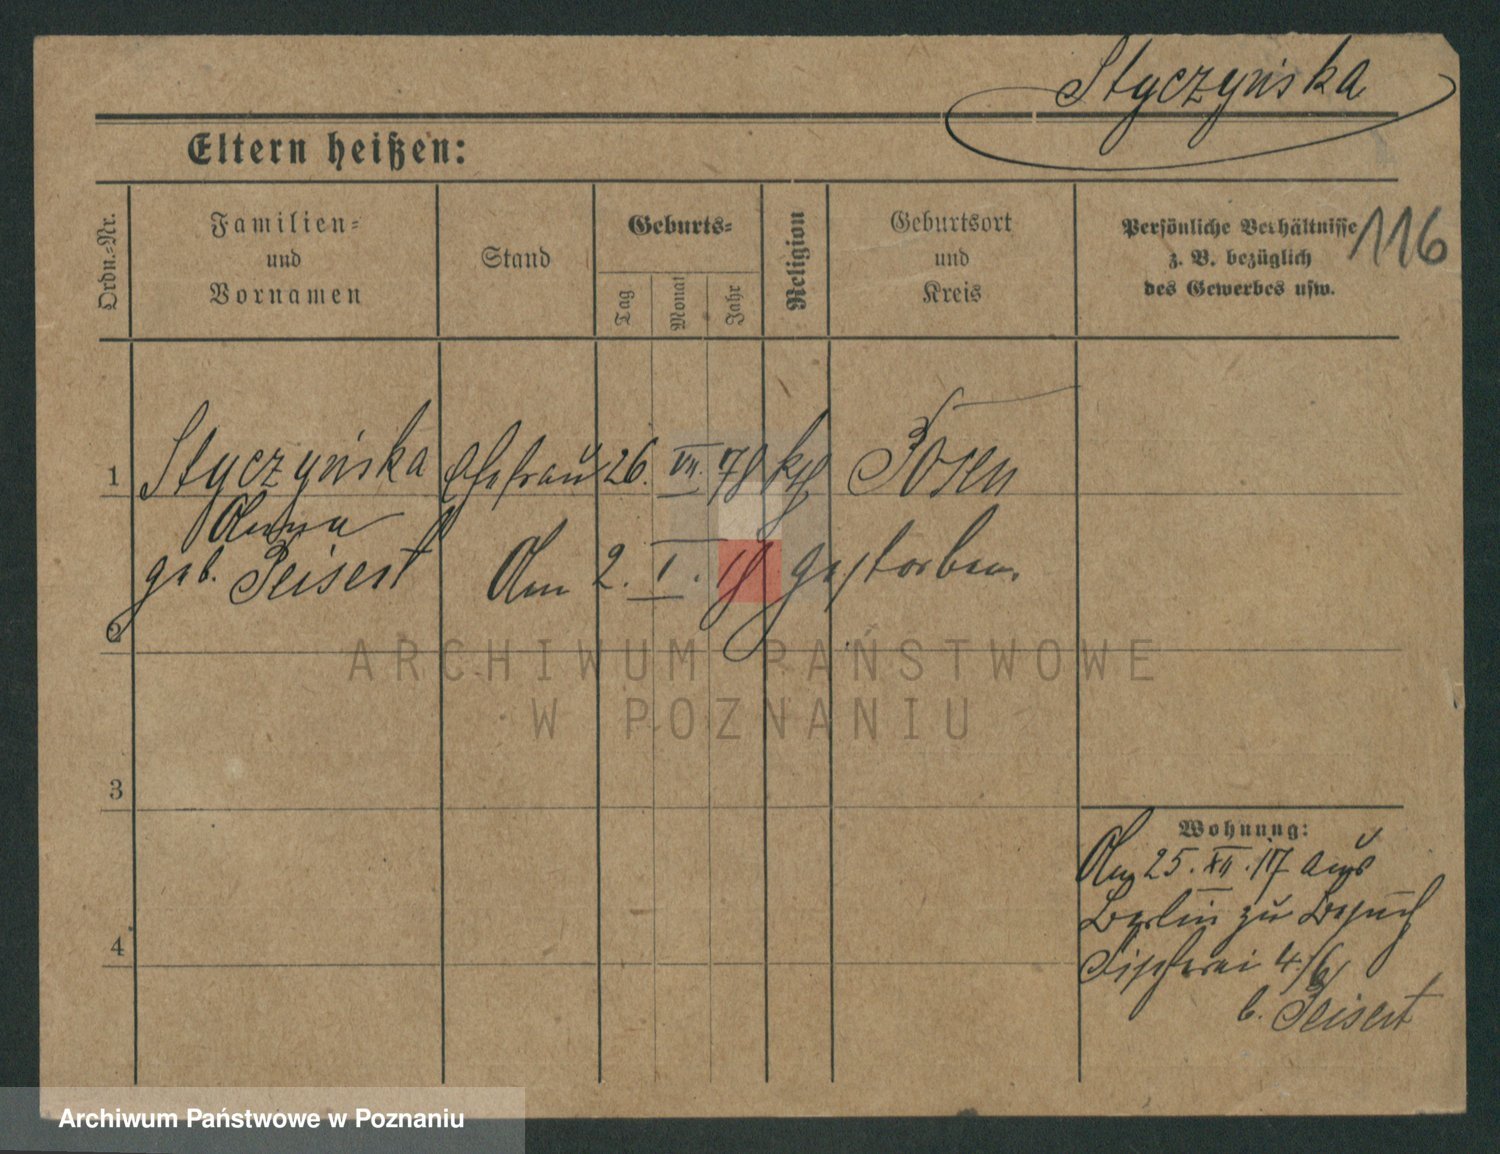 Styczyńska
Eltern heißen:
116
Ordn.-Nr.
Familien-
und
Vornamen
Stand
Geburts-
Tag
Monat
Jahr
Religion
Geburtsort
und
Kreis
Persönliche Verhältnisse
z. B. bezüglich
des Gewerbes usw.
1 Styczyńska Ehefrau 26. VII. 78 kth Posen
Anna
geb. Peisert Am 2. I. 18 gestorben.
2
ARCHIWUM PAŃSTWOWE
W POZNANIU
3
Wohnung:
Am 25. XII. 17 aus
Berlin zu Besuch
4
Fischerei 4/6
b. Peisert
Archiwum Państwowe w Poznaniu